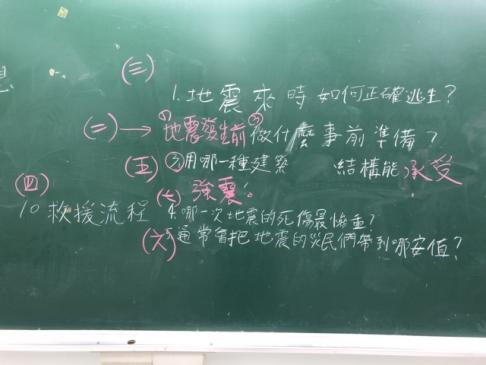 息
(三)
1.地震來時如何正確逃生?
(二)→地震發生前做什麼事前準備?
(五)③用哪一種建築 結構能承受
(四) (七)強震!
10救援流程 4.哪一次地震的死傷最慘重?
(六)通常會把地震的災民們帶到哪安值?